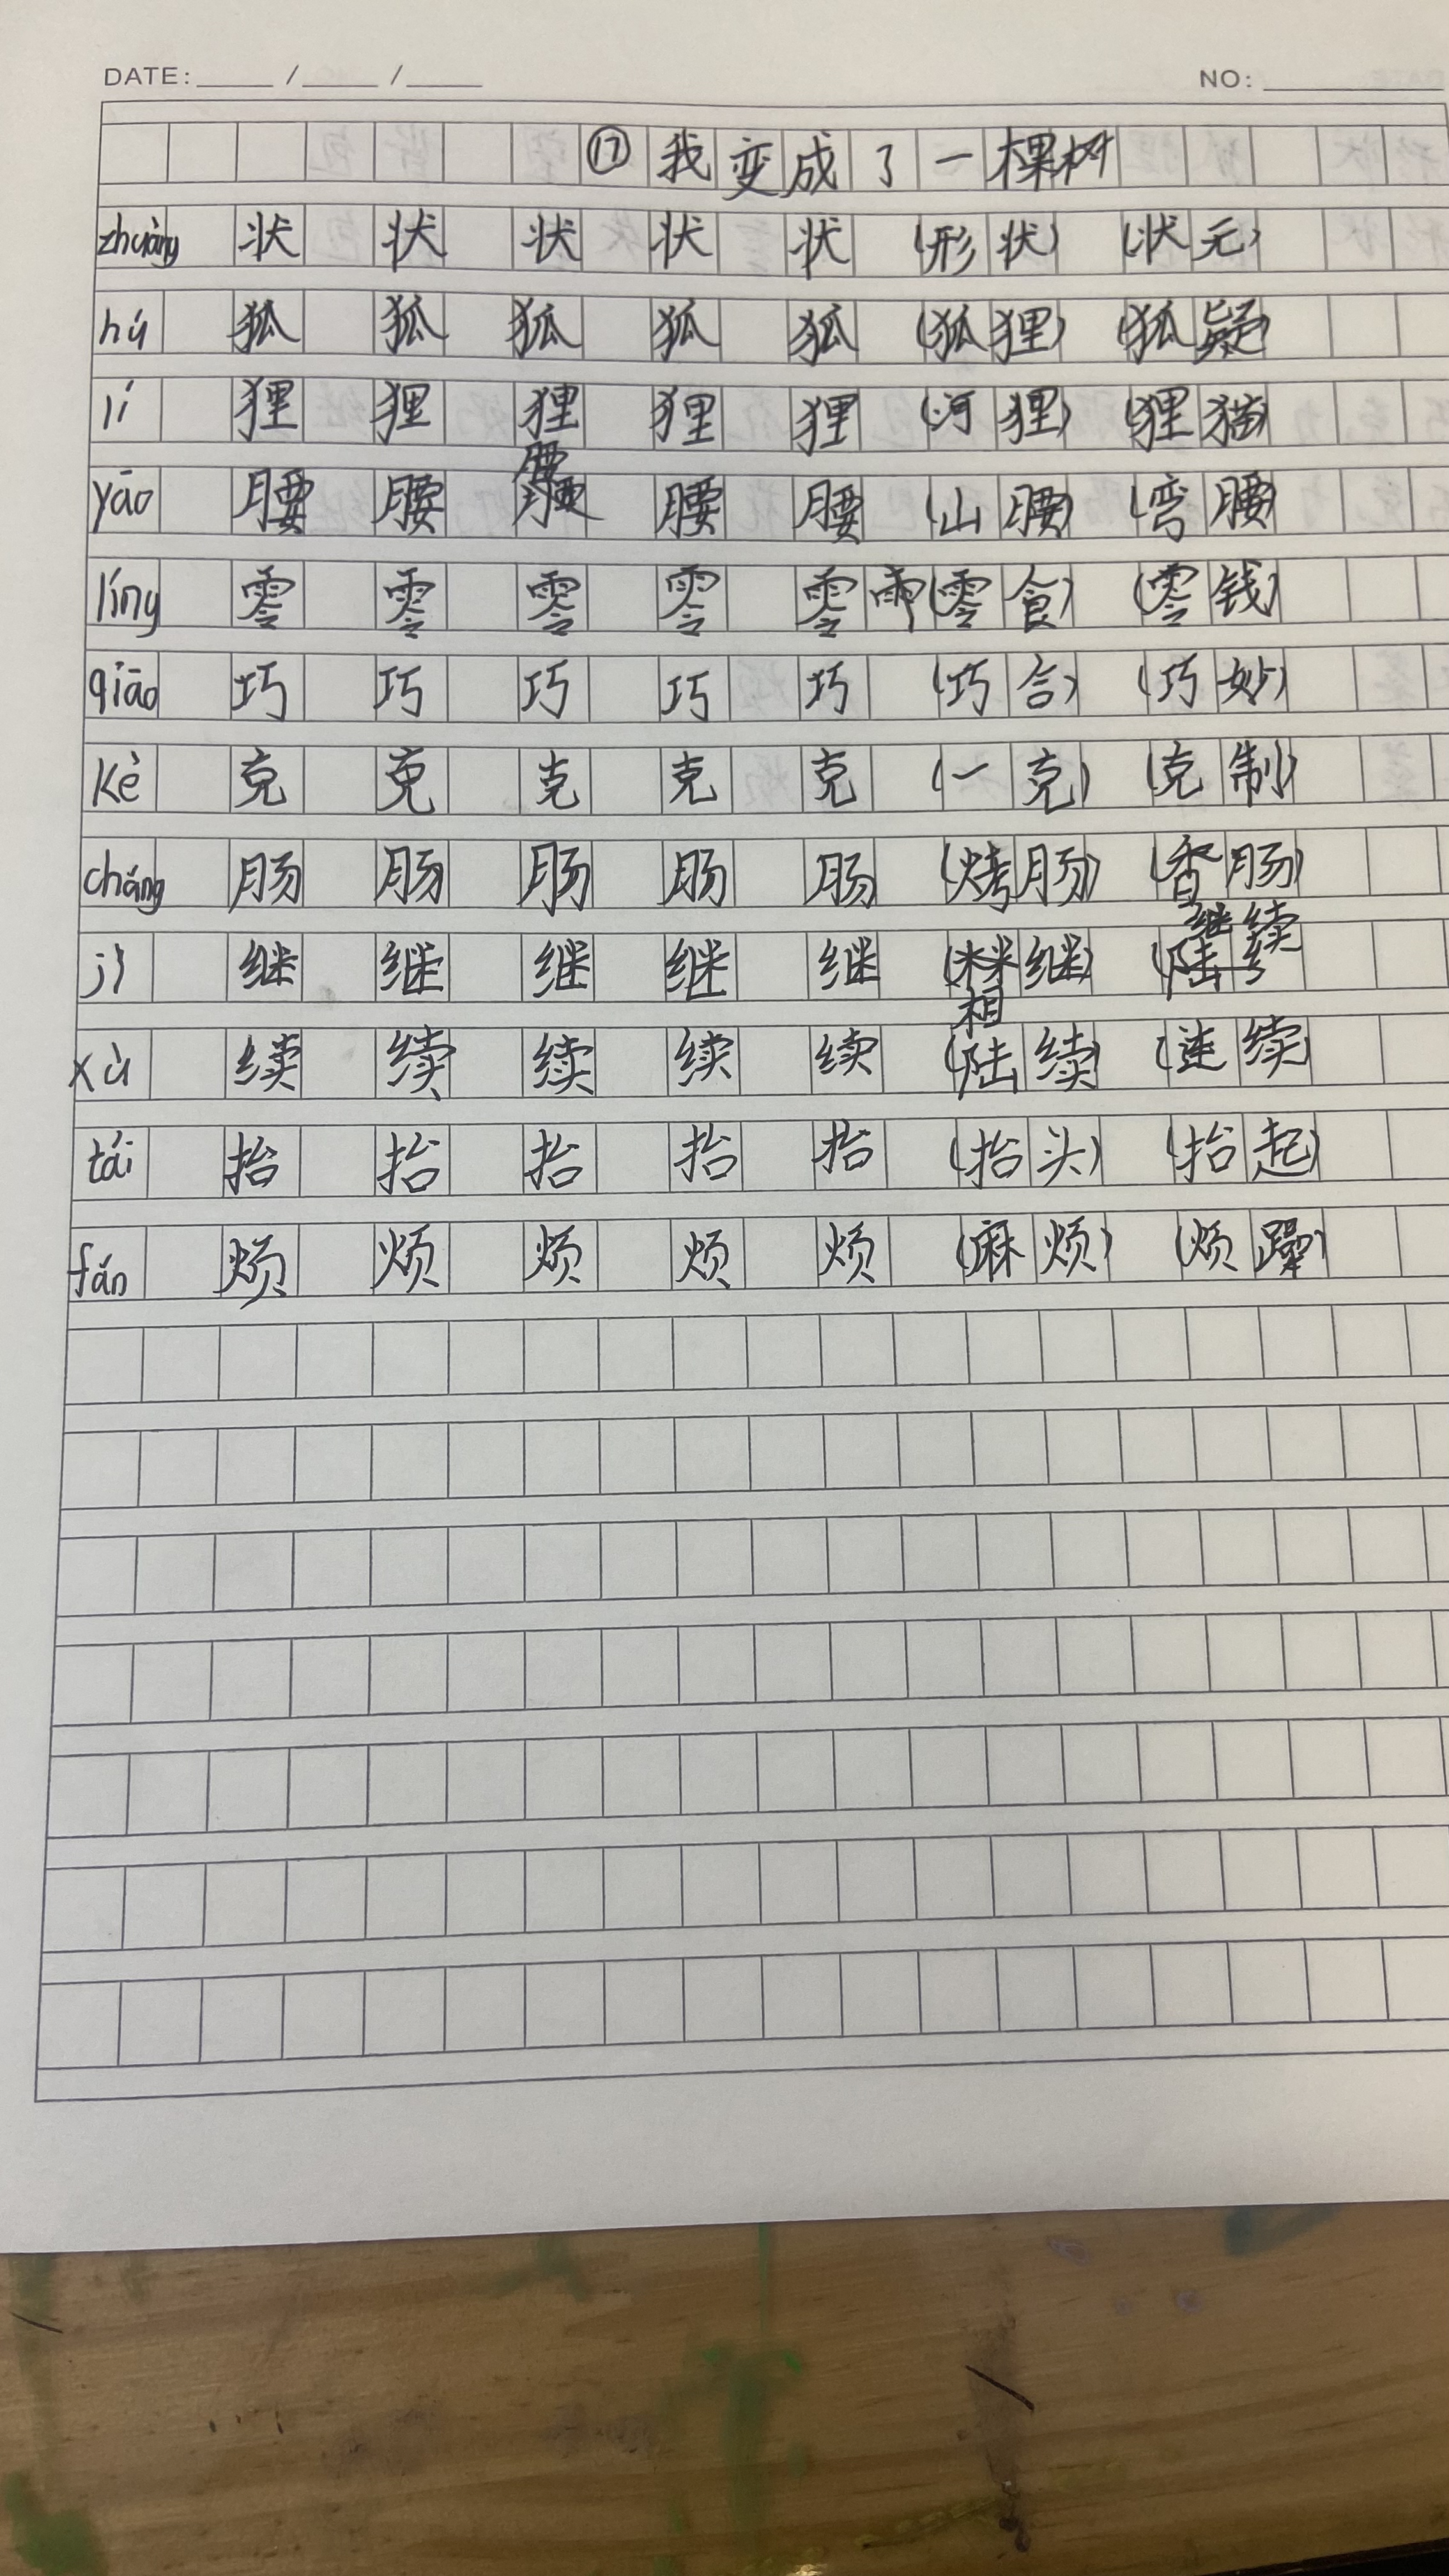 DATE: / / NO:
⑰ 我变成了一棵树
zhuàng 状 状 状 状 状 (形状) (状元)
hú 狐 狐 狐 狐 狐 (狐狸) (狐疑)
lí 狸 狸 狸 狸 狸 (河狸) (狸猫)
腰
yāo 腰 腰 腰 腰 (山腰) (弯腰)
líng 零 零 零 零 零 雨 (零食) (零钱)
qiāo 巧 巧 巧 巧 巧 (巧合) (巧妙)
kè 克 克 克 克 克 (一克) (克制)
cháng 肠 肠 肠 肠 肠 (烤肠) (香肠)
继续
jì 继 继 继 继 继 (继) (陆
相
xù 续 续 续 续 续 (陆续) (连续)
tái 抬 抬 抬 抬 抬 (抬头) (抬起)
fán 烦 烦 烦 烦 烦 (麻烦) (烦躁)